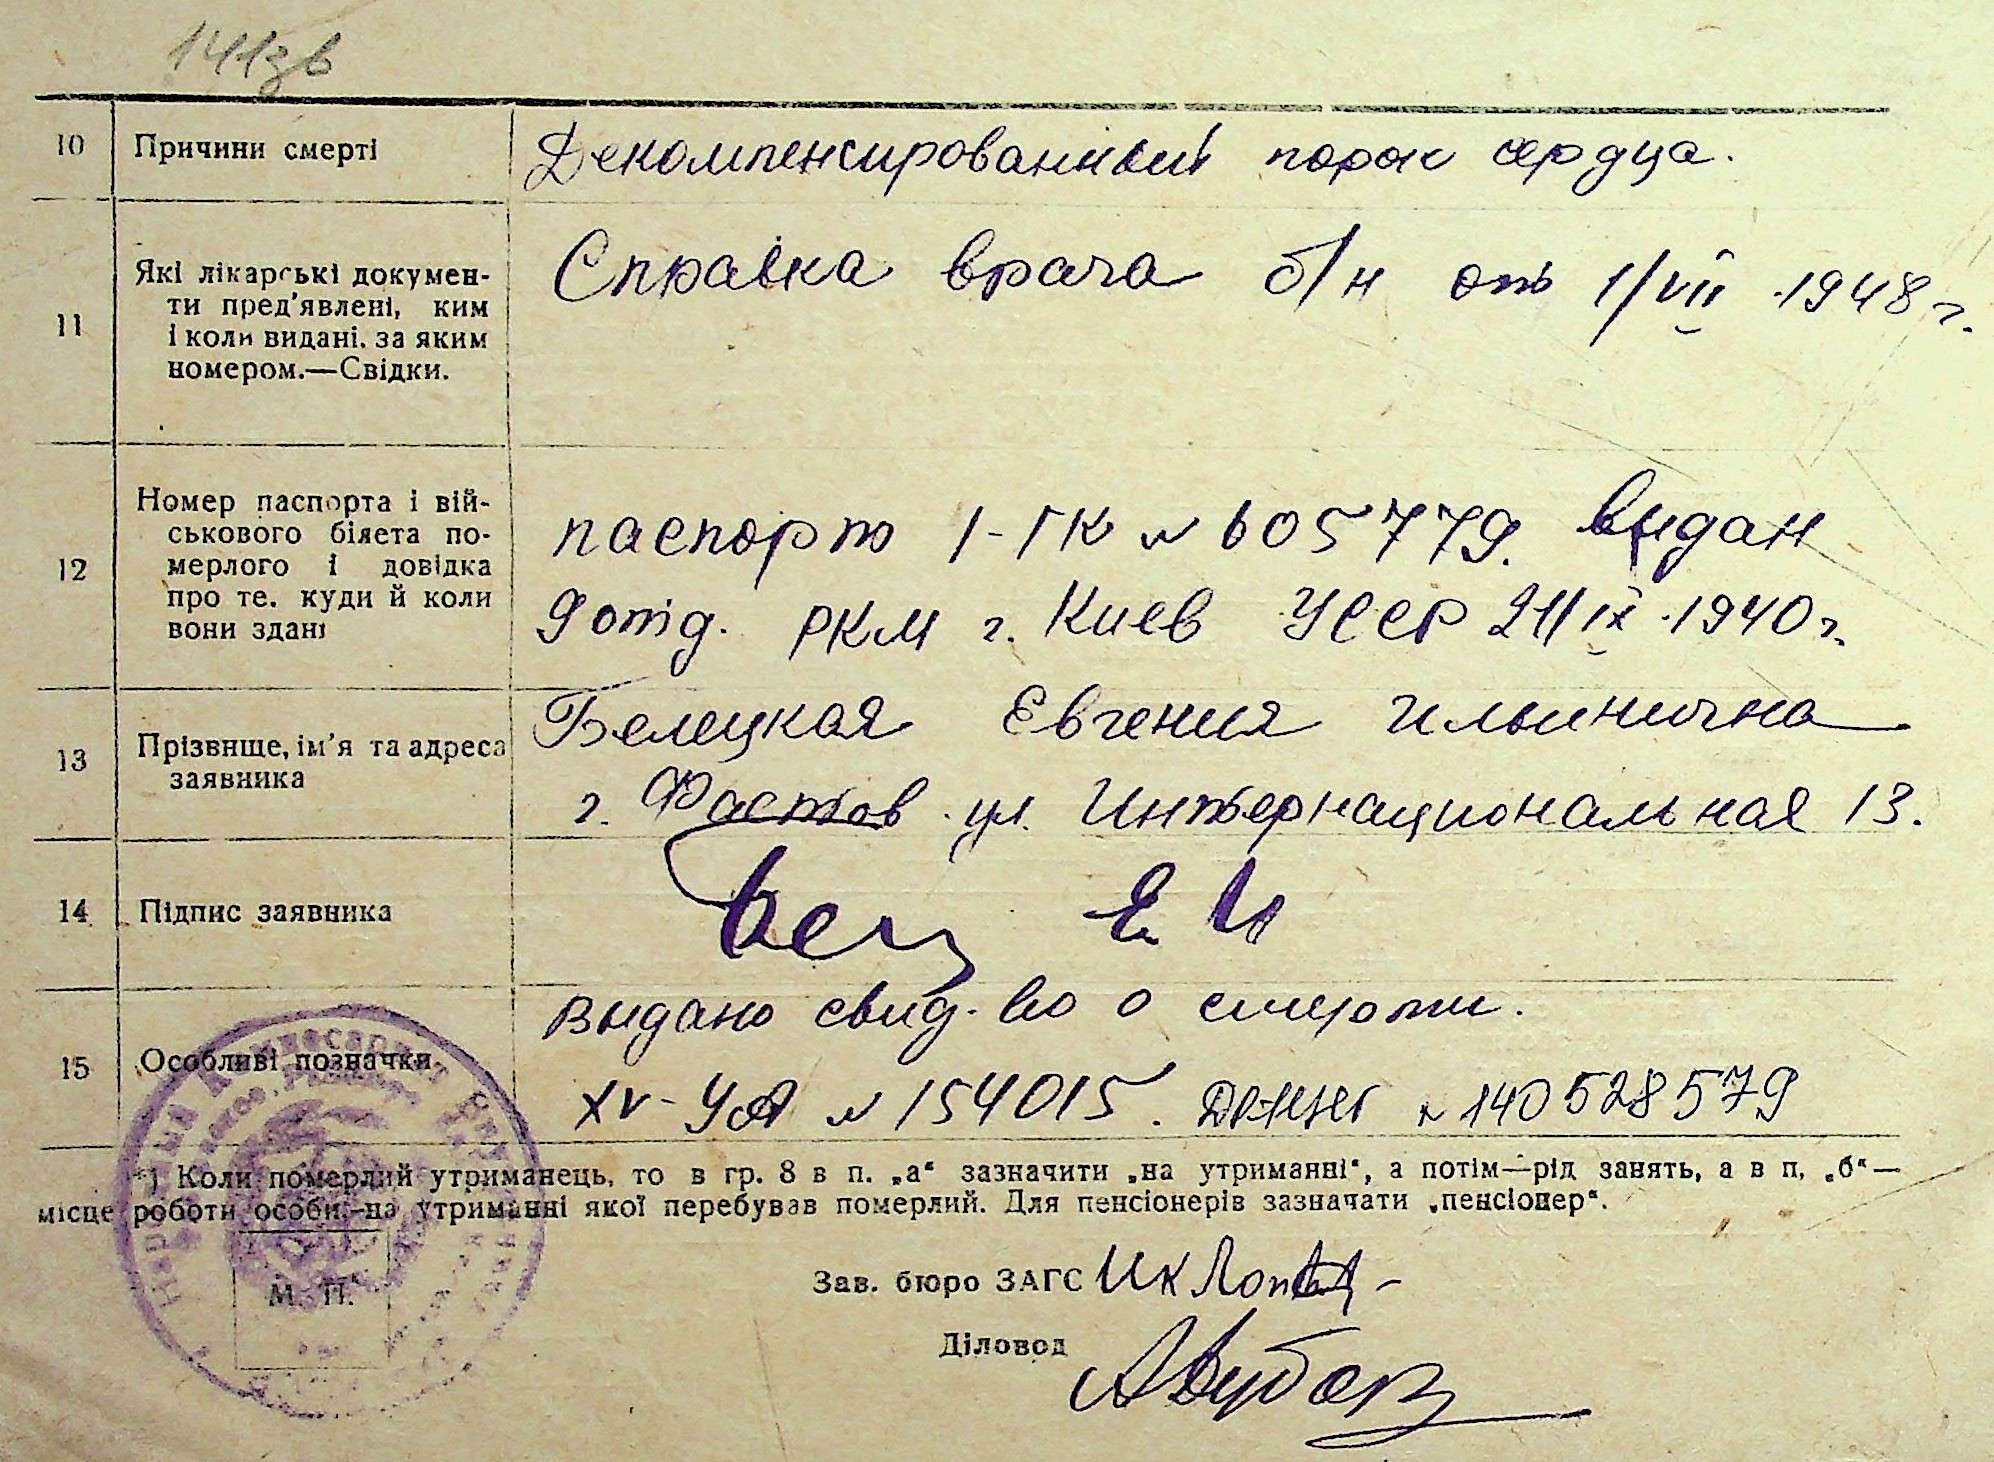 141зв
10 Причини смерті Декомпенсированный порок сердца.
11 Які лікарські докумен-
ти пред'явлені, ким
і коли видані, за яким
номером.—Свідки.
Справка врача б/н от 1/VII 1948 г.
12 Номер паспорта і вій-
ськового білета по-
мерлого і довідка
про те, куди й коли
вони здані
паспорт 1-ГК № 605779. видан
9 отд. РКМ г. Киев УССР 21/IX 1940 г.
13 Прізвище, ім'я та адреса
заявника
Белецкая Евгения Ильинична
г. Фастов ул. Интернациональная 13.
14 Підпис заявника Бел Е И
15 Особливі позначки
выдано свид-во о смерти.
XV-УА № 154015. № 140528579
*) Коли померлий утриманець, то в гр. 8 в п. „а“ зазначити „на утриманні“, а потім—рід занять, а в п. „б“—
місце роботи особи, на утриманні якої перебував померлий. Для пенсіонерів зазначати „пенсіонер“.
М. П.
Зав. бюро ЗАГС
Діловод